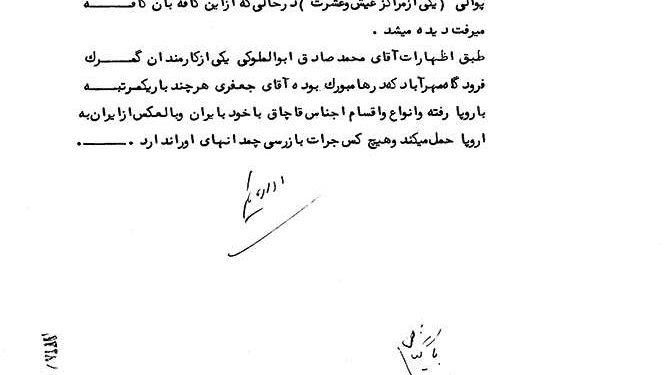 پوآلی (یکی از مراکز عیش و عشرت) در حالی که از این کافه بآن کافه
میرفت دیده میشد .
طبق اظهارات آقای محمد صادق ابوالملوکی یکی از کارمندان گمرک
فرودگاه مهرآباد که در هامبورک بوده آقای جعفری هر چند بار یکمرتبه
باروپا رفته وانواع واقسام اجناس قاچاق با خود بایران وبالعکس از ایران به
اروپا حمل میکند وهیچ کس جرات بازرسی چمدانهای او را ندارد .